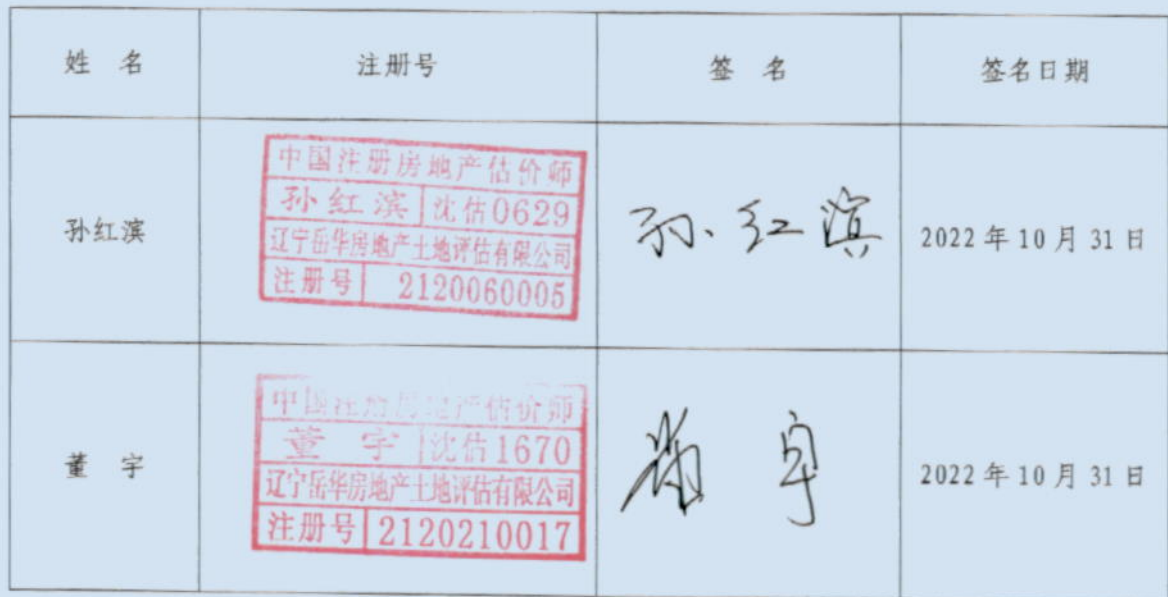 姓 名 注册号 签 名 签名日期
中国注册房地产估价师
孙红滨 沈估0629
辽宁岳华房地产土地评估有限公司
注册号 2120060005
孙红滨
孙红滨
2022年10月31日
中国注册房地产估价师
董 宇 沈估1670
辽宁岳华房地产土地评估有限公司
注册号 2120210017
董 宇
董宇
2022年10月31日